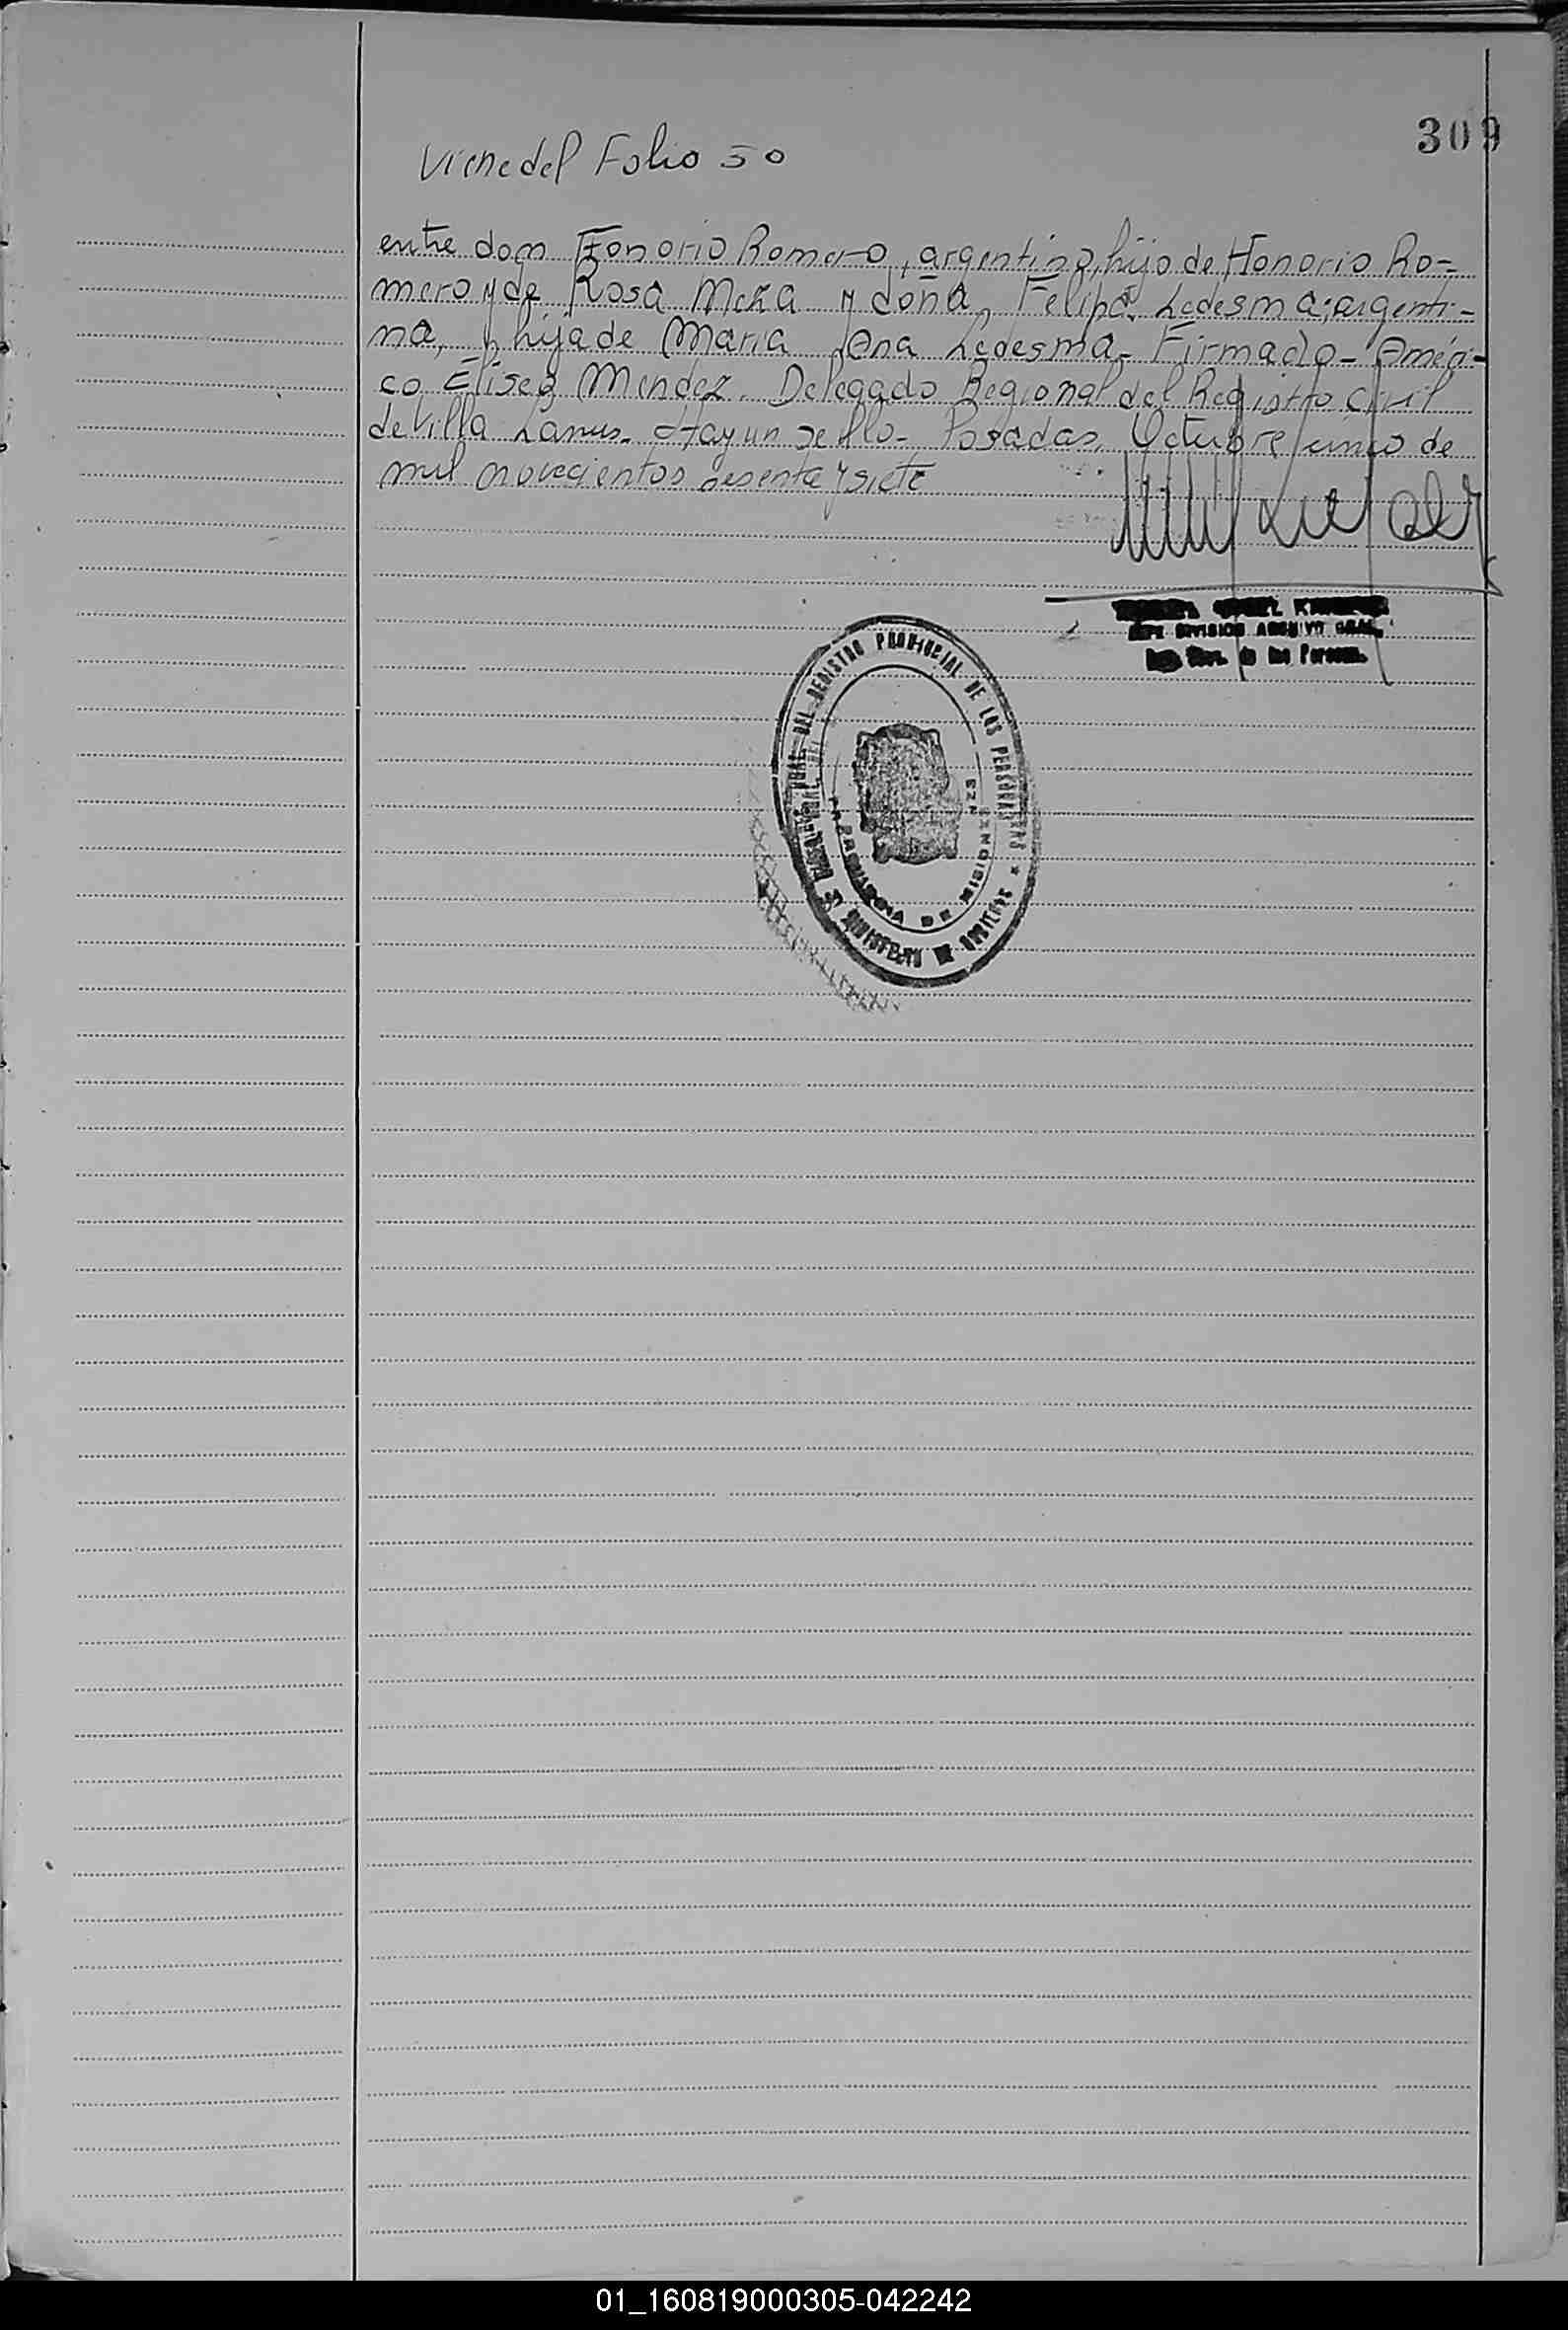 309
Viene del Folio 50
entre don Honorio Romero, argentino, hijo de Honorio Ro-
mero y de Rosa Meza y doña Felipa Ledesma; argenti-
na, hija de Maria Ana Ledesma. Firmado - Améri-
co Eliseo Mendez. Delegado Regional del Registro Civil
de Villa Lanus. Hay un sello - Posadas, Octubre cinco de
mil novecientos sesenta y siete
JEFE DIVISION ARCHIVO GRAL.
de las Personas
DEL REGISTRO PROVINCIAL DE LAS PERSONAS
PROVINCIA DE MISIONES
01_160819000305-042242